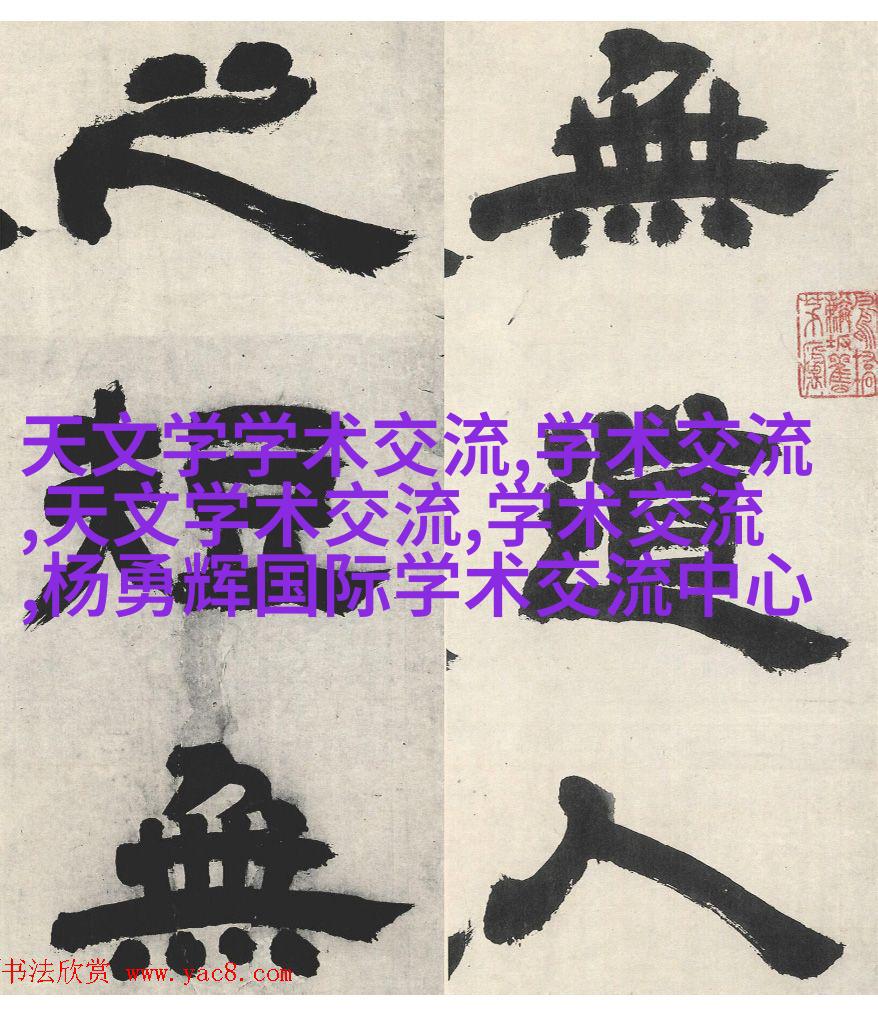 無
人
之
無
天文学学术交流,学术交流
,天文学术交流,学术交流
,杨勇辉国际学术交流中心
书法欣赏 www.yac8.com